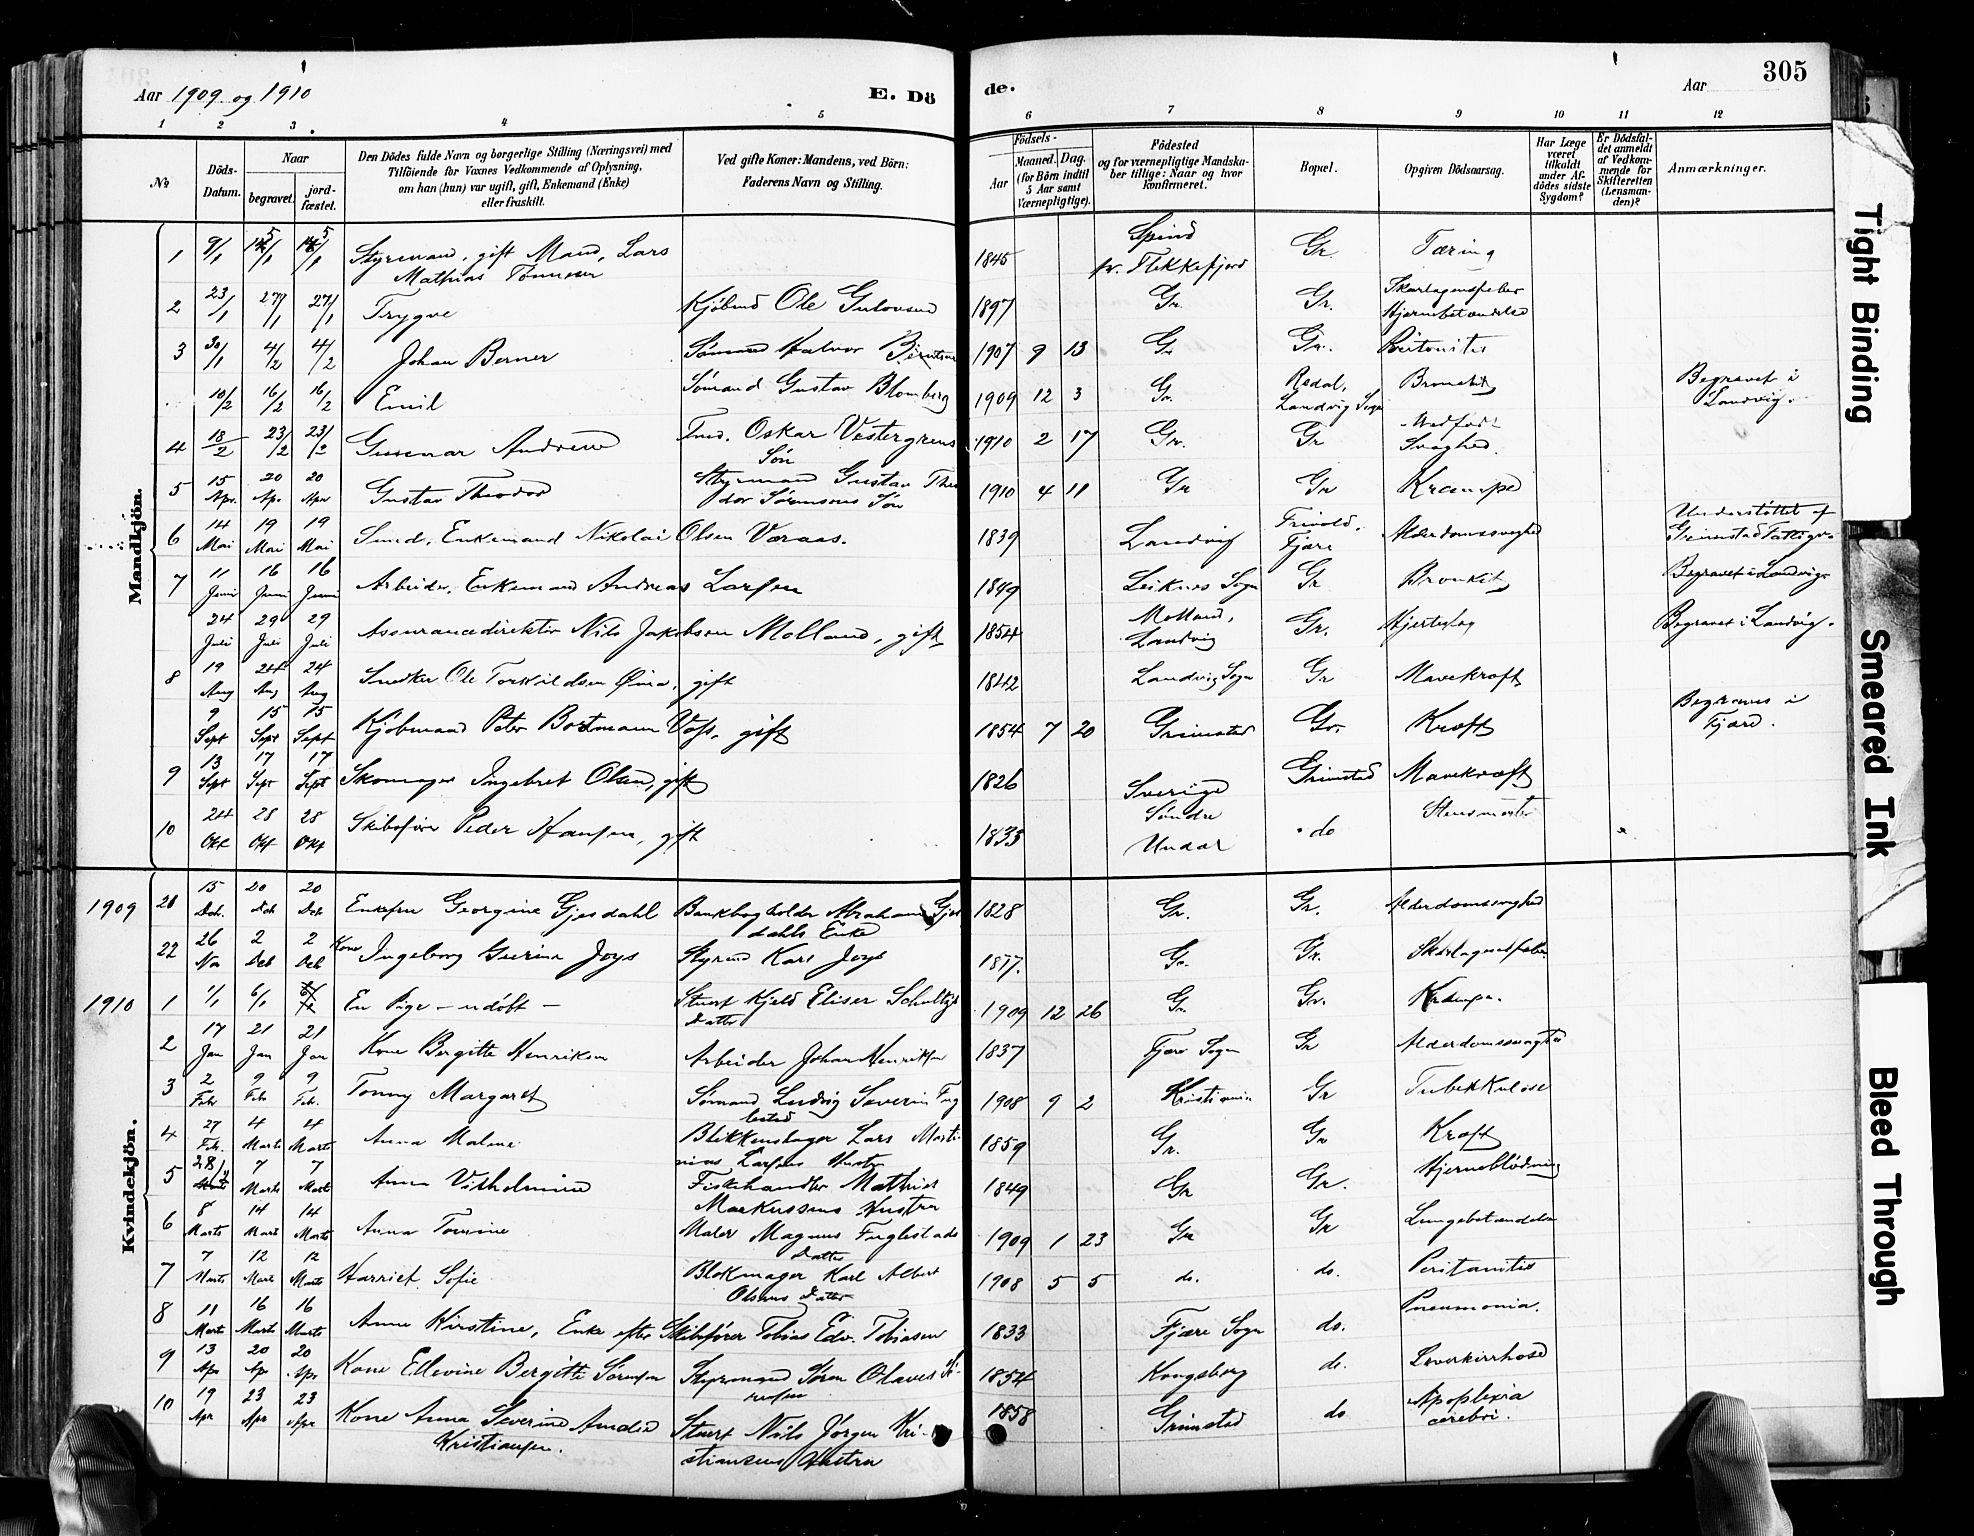 Aar 1909 og 1910
E. Dö
de.
Aar
305
1 2 3 4 5 6 7 8 9 10 11 12
№
Döds-Datum.
Naar
begravet.
jord-fæstet.
Den Dödes fulde Navn og borgerlige Stilling (Næringsvei) med
Tilföiende for Voxnes Vedkommende af Oplysning,
om han (hun) var ugift, gift, Enkemand (Enke)
eller fraskilt.
Ved gifte Koner: Mandens, ved Börn:
Faderens Navn og Stilling.
Födsels-
Aar
Maaned. Dag.
(for Börn indtil
5 Aar samt
Værnepligtige).
Födested
og for værnepligtige Mandska-
ber tillige: Naar og hvor
konfirmeret.
Bopæl.
Opgiven Dödsaarsag.
Har Læge
været
tilkaldt
under Af-
dödes sidste
Sygdom?
Er Dödsfal-
det anmeldt
af Vedkom-
mende for
Skifteretten
(Lensman-
den)?
Anmærkninger.
Mandkjön.
1 9/1 15/1 15/1 Styrmand, gift Mand, Lars Mathias Tönnesen 1845 Spind pr. Flekkefjord Gr. Tæring
2 23/1 27/1 27/1 Trygve Kjöbmd Ole Gulovsen 1897 Gr. Gr. Skarlagensfeber Hjernebetændelse
3 30/1 4/2 4/2 Johan Berner Sömand Halvor 1907 9 13 Gr Gr. Peritonitis
10/2 16/2 16/2 Emil Sömand Gustav Blomberg 1909 12 3 Gr. Rodal, Landvig Sogn Bronchit Begravet i Landvig.
4 18/2 23/2 23/2 Gunnar Andreas Tmd. Oskar Vestergrens Sön 1910 2 17 Gr. Gr Medfödt Svaghed.
5 15 Apr. 20 Apr 20 Apr Gustav Theodor Styrmand Gustav Theodor Sörensens Sön 1910 4 11 Gr Gr Krampe
6 14 Mai 19 Mai 19 Mai Smed, Enkemand Nikolai Olsen Væraas. 1839 Landvig Frivold, Fjære Alderdomssvaghed Understöttet af Grimstad Fattigv.
7 11 Juni 16 Juni 16 Juni Arbeider, Enkemand Andreas Larsen 1849 Sogn Gr Bronkit Begravet i Landvig.
24 Juli 29 Juli 29 Juli Assurancedirektör Nils Jakobsen Molland, gift 1854 Molland, Landvig Gr. Hjerteslag Begravet i Landvig.
8 19 Aug 24 Aug 24 Aug Snedker Ole Torkildsen Öina, gift 1842 Landvig Sogn Gr Mavekræft
9 Sept 15 Sept 15 Sept Kjöbmand Peter Bostmann Voss, gift 1854 7 20 Grimstad Gr. Kræft Begraves i Fjære.
9 13 Sept 17 Sept 17 Sept Skomager Ingebret Olsen, gift 1826 Sverige Grimstad Mavekræft
10 24 Okt 28 Okt 28 Okt Skibsförer Peder Hansen, gift 1833 Söndre Undal do
Kvindekjön.
1909 21 15 Deb. 20 Deb 20 Deb Enkefru Georgine Gjesdahl Bankbogholder Abraham Gjesdahls Enke 1828 Gr. Gr. Alderdomssvaghed
22 26 Nov 2 Deb 2 Deb Kone Ingeborg Geerine Joys Styrmd Karl Joys 1877. Gr. Gr. Skarlagensfeber
1910 1 1/1 6/1 En Pige – udöbt – Stuert Kjeld Eliser Datter 1909 12 26 Gr. Gr. Krampe.
2 17 Jan 21 Jan 21 Jan Kone Bergitte Henriksen Arbeider Johan Henriksen 1837 Fjære Sogn Gr Alderdomssvaghed
3 2 Febr 9 Febr 9 Febr. Tonny Margaret Sömand Ludvig Severin Fuglestad 1908 9 2 Kristiania Gr Tuberkulose
4 27 Febr. 4 Marts 4 Marts Anna Malene Blikkenslager Lars Martinius Larsens Hustru 1859 Gr. Gr Kræft
5 28/ 7 Marts 7 Marts Anna Vilhelmine Fiskehandler Mathias Markussens Hustru 1849 Gr Gr. Hjerneblödning
6 8 Marts 14 Marts 14 Marts Anna Tomine Maler Magnus Fuglestads Datter 1909 1 23 Gr Gr Lungebetændelse
7 7 Marts 12 Marts 12 Marts Harriet Sofie Blokmager Karl Albert Olsens Datter 1908 5 5 do. do. Peritonitis
8 11 Marts 16 Marts 16 Marts Anne Kirstine, Enke efter Skibsförer Tobias Edv. Tobiassen 1833 Fjære Sogn do. Pneumonia.
9 13 Apr 20 Apr 20 Apr Kone Edevine Bergitte Sörensen Styrmand Sören Olaves Sörensen 1854 Kongsberg do. Levercirrhose
10 19 Apr 23 Apr 23 Apr Kone Anna Severine Amalie Kristiansen. Stuert Nils Jörgen Kristiansens Hustru 1858 Grimstad do Apoplexia cerebri.
Tight Binding
Smeared Ink
Bleed Through